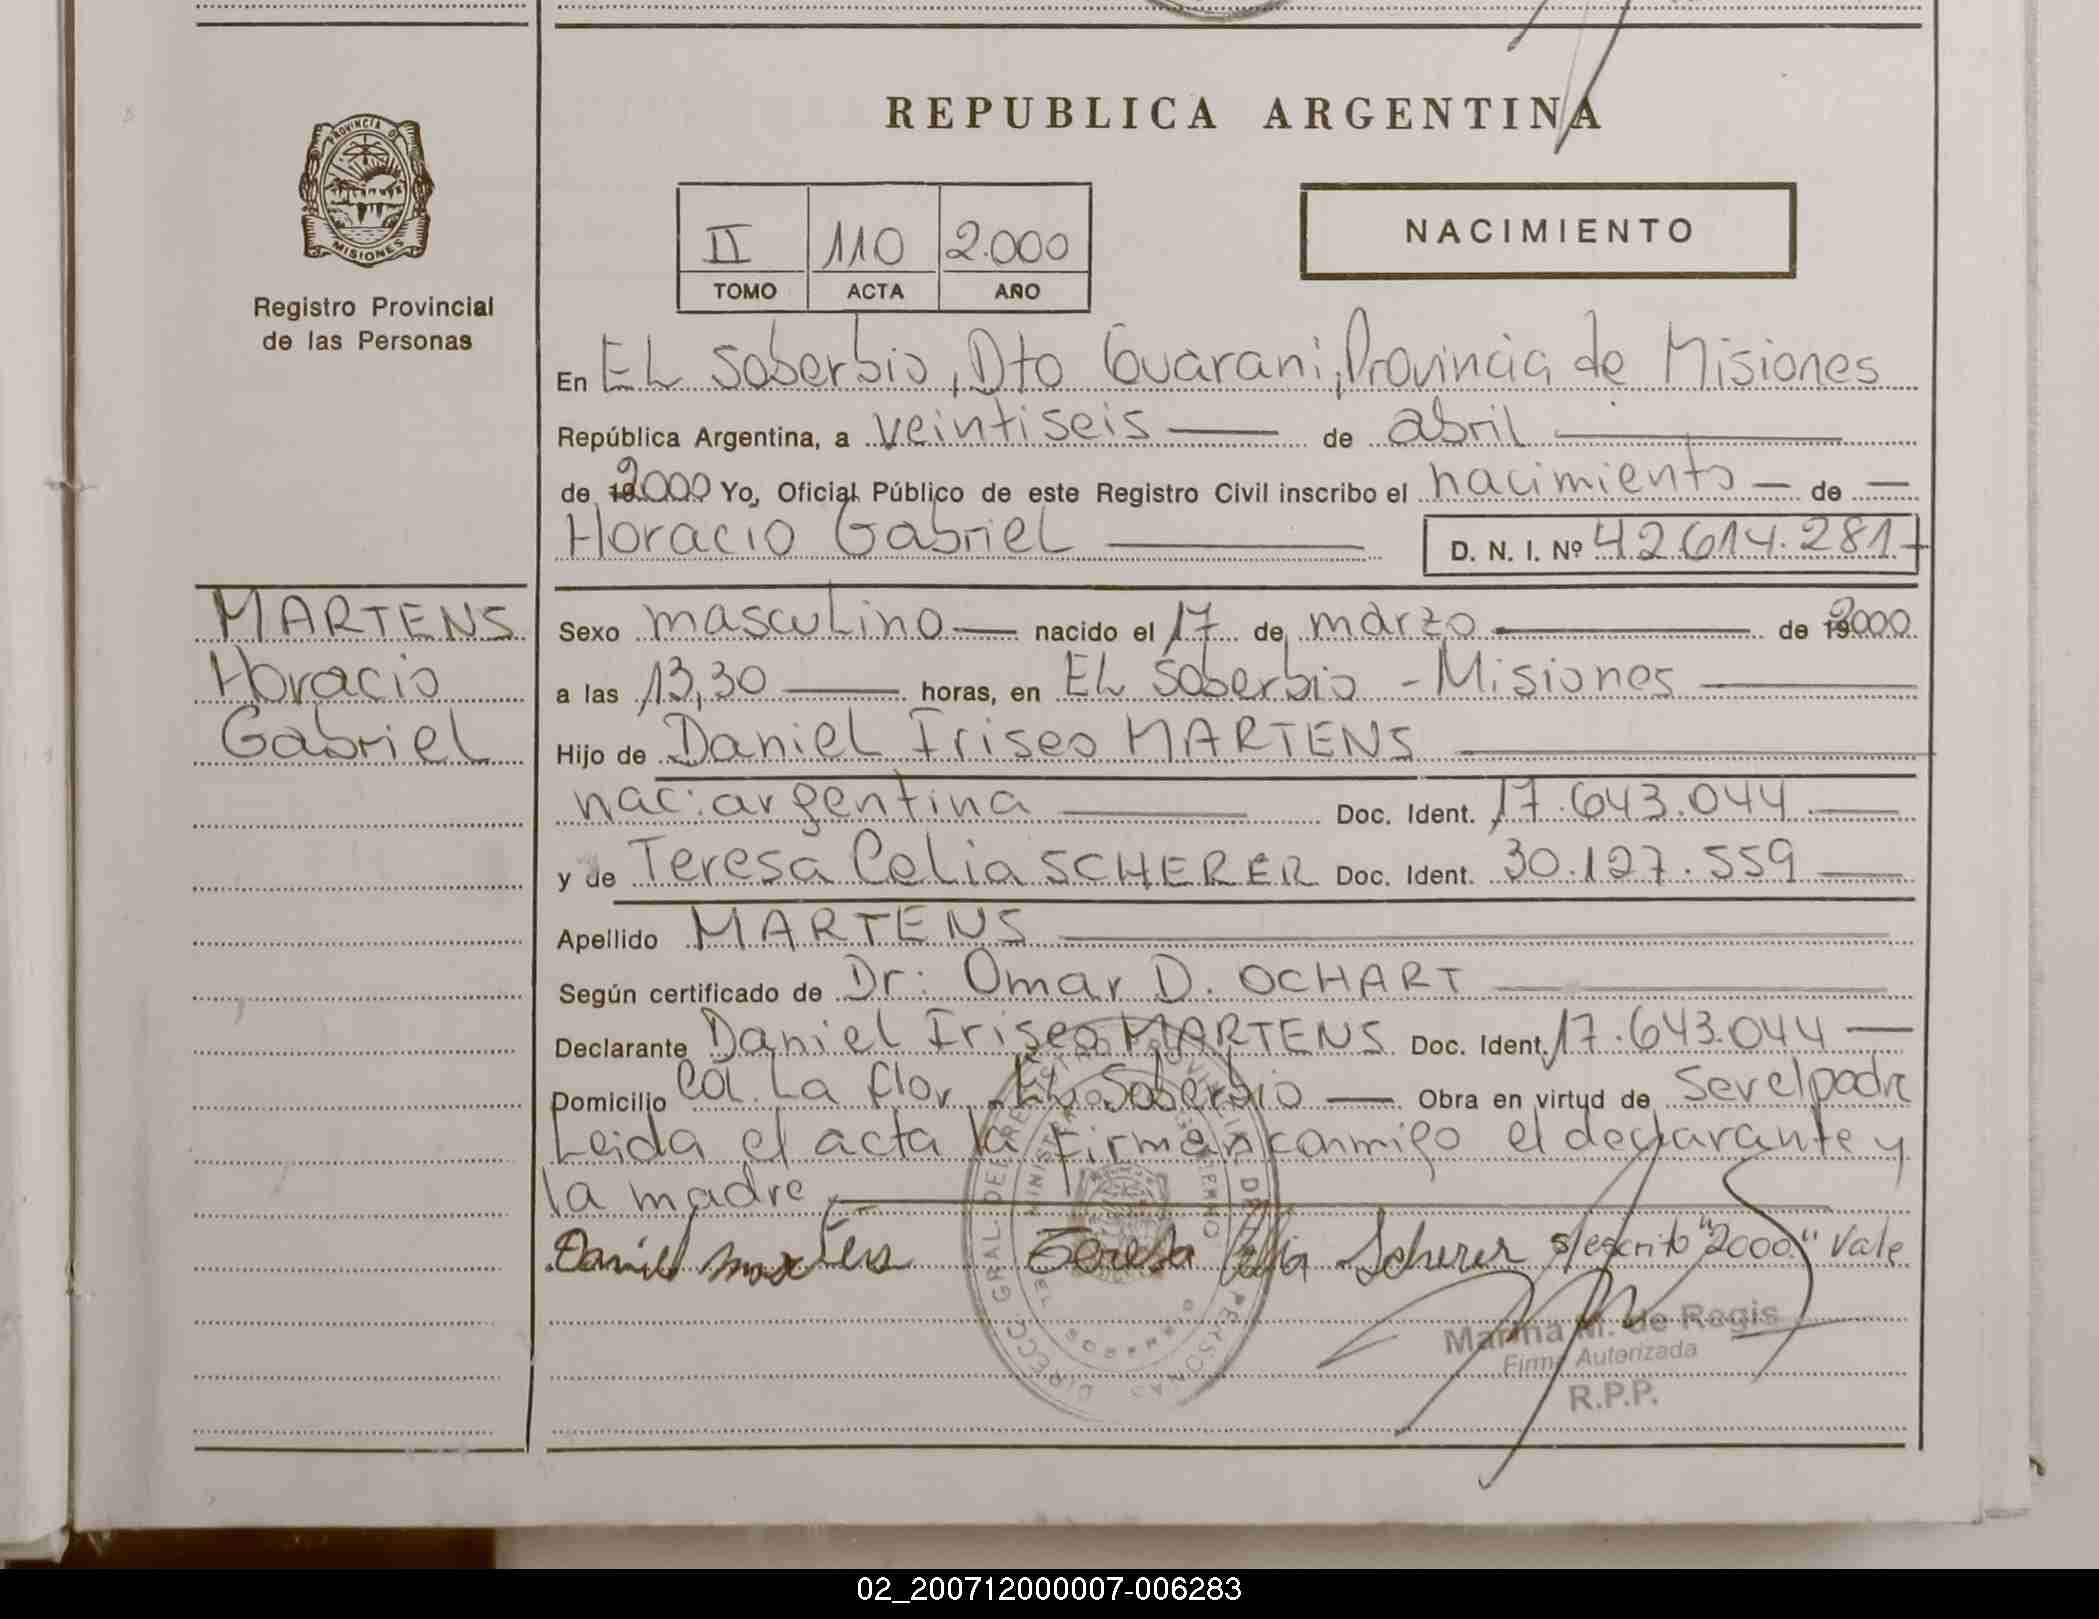 REPUBLICA ARGENTINA
PROVINCIA DE
MISIONES
Registro Provincial
de las Personas
II 110 2.000
TOMO ACTA AÑO
NACIMIENTO
En EL Soberbio, Dto Guarani, Provincia de Misiones
República Argentina, a veintiseis de abril
de 2000 Yo, Oficial Público de este Registro Civil inscribo el nacimiento de
Horacio Gabriel D. N. I. Nº 42614.281
MARTENS
Horacio
Gabriel
Sexo masculino nacido el 17 de marzo de 2000
a las 13,30 horas, en EL Soberbio - Misiones
Hijo de Daniel Iriseo MARTENS
nac: argentina Doc. Ident. 17.643.044
y de Teresa Celia SCHERER Doc. Ident. 30.127.559
Apellido MARTENS
Según certificado de Dr: Omar D. OCHART
Declarante Daniel Iriseo MARTENS Doc. Ident. 17.643.044
Domicilio Col. La flor EL Soberbio Obra en virtud de Ser el padre
Leida el acta la firman conmigo el declarante y
la madre
Daniel Martens Teresa Celia Scherer s/escrito "2000" Vale
Marina M. de Regis
Firma Autorizada
R.P.P.
DIRECC. GRAL. DEL REGISTRO PROVINCIAL DE PERSONAS
EL SOBERBIO
02_200712000007-006283